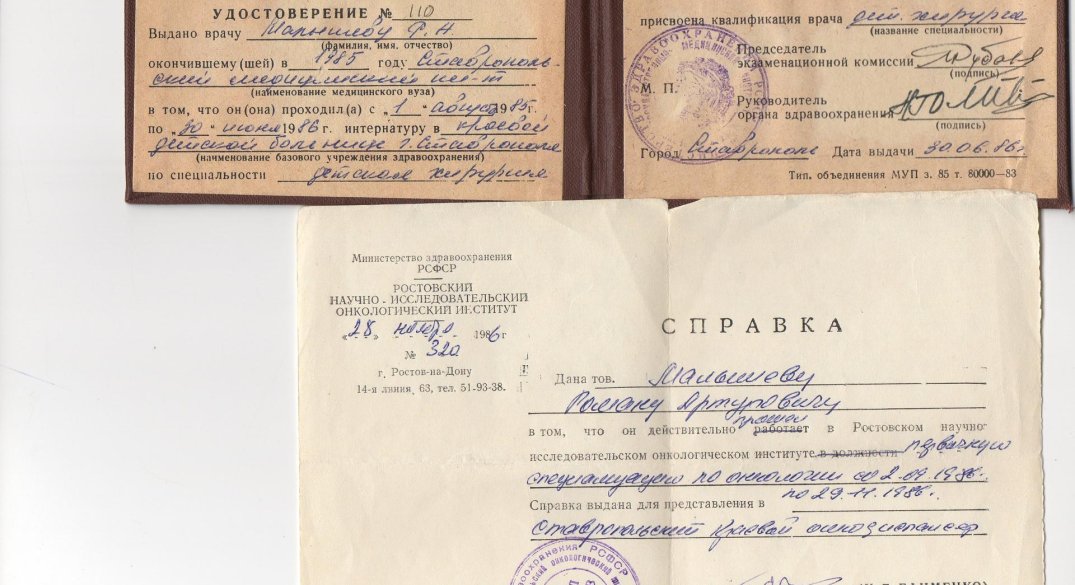 УДОСТОВЕРЕНИЕ № 110
Выдано врачу Малышеву Р. А.
(фамилия, имя, отчество)
окончившему(шей) в 1985 году Ставрополь-
ский медицинский ин-т
(наименование медицинского вуза)
в том, что он(она) проходил(а) с „1“ августа 1985г.
по „30“ июня 1986 г. интернатуру в краевой
детской больнице г. Ставрополя
(наименование базового учреждения здравоохранения)
по специальности детская хирургия
присвоена квалификация врача дет. хирурга
(название специальности)
Председатель
экзаменационной комиссии
(подпись)
М. П.
Руководитель
органа здравоохранения
(подпись)
Город Ставрополь Дата выдачи 30.06.86г.
Тип. объединения МУП з. 85 т. 80000—83
Министерство здравоохранения
РСФСР
РОСТОВСКИЙ
НАУЧНО - ИССЛЕДОВАТЕЛЬСКИЙ
ОНКОЛОГИЧЕСКИЙ ИНСТИТУТ
„28“ ноября 1986 г
№ 320
г. Ростов-на-Дону
14-я линия, 63, тел. 51-93-38.
СПРАВКА
Дана тов. Малышеву
Роману Артуровичу
прошел
в том, что он действительно работает в Ростовском научно-
исследовательском онкологическом институте в должности первичную
специализацию по онкологии со 2.09.1986г.
по 29.11.1986г.
Справка выдана для представления в
Ставропольский Краевой онкодиспансер